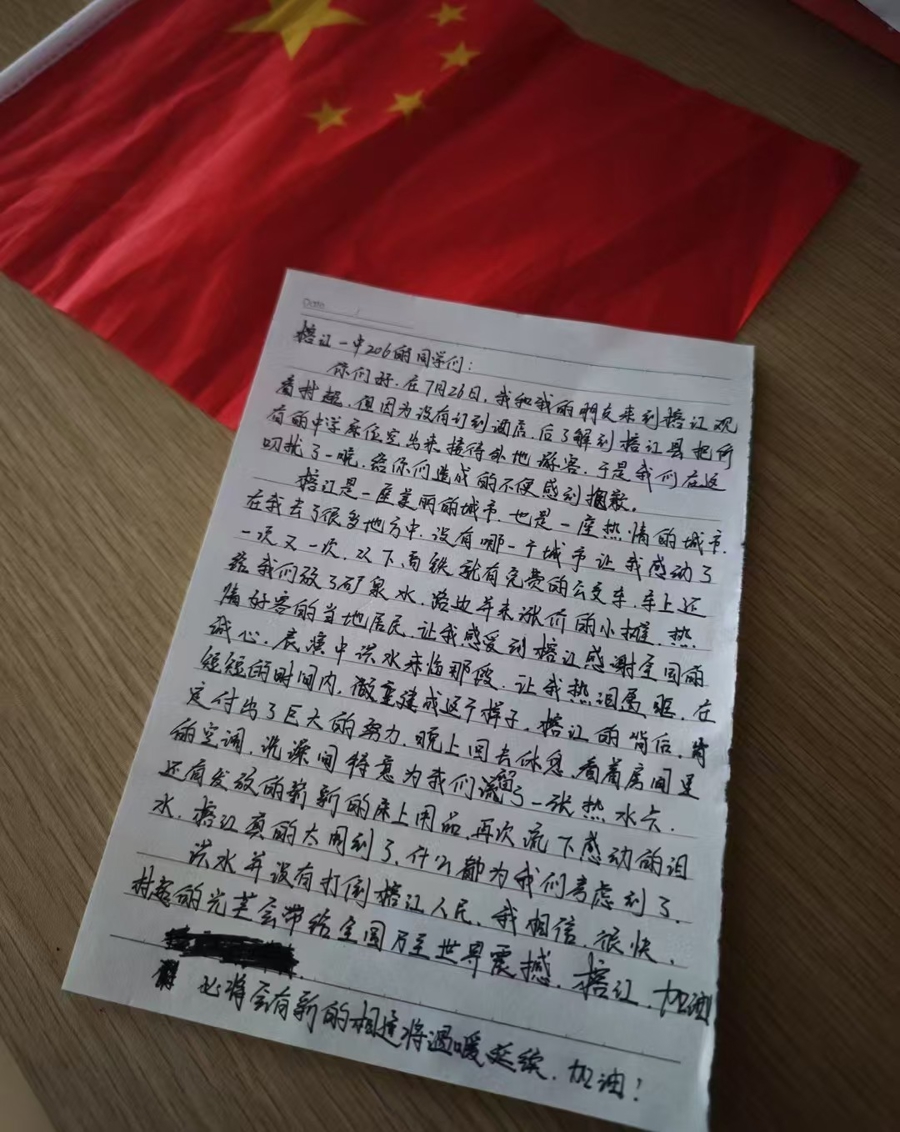 Date
榕江一中206的同学们：
你们好.在7月26日，我和我的朋友来到榕江观
看村超.但因为没有订到酒店.后了解到榕江县把所
有的中学床位空出来接待外地游客.于是我们在这
叨扰了一晚.给你们造成的不便感到抱歉。
榕江是一座美丽的城市.也是一座热情的城市.
在我去了很多地方中.没有哪一个城市让我感动了
一次又一次.从下高铁就有免费的公交车.车上还
给我们放了矿泉水.路边并未涨价的小摊.热
情好客的当地居民.让我感受到榕江感谢全国的
诚心.表演中洪水来临那段.让我热泪盈眶.在
短短的时间内.做重建成这个样子.榕江的背后.肯
定付出了巨大的努力.晚上回去休息.看着房间里
的空调.洗澡间特意为我们留了一张热水卡.
还有发放的崭新的床上用品.再次流下感动的泪
水.榕江真的太周到了.什么都为我们考虑到了.
洪水并没有打倒榕江人民.我相信.很快.
村超的光芒会带给全国乃至世界震撼.榕江.加油!
必将会有新的相逢将温暖延续.加油!